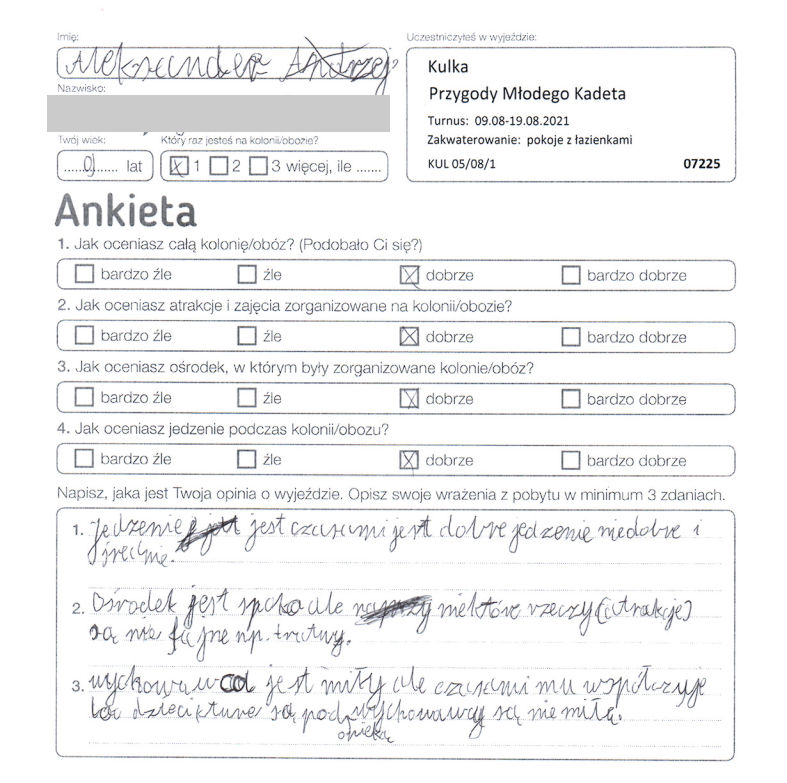 Imię:
Aleksander Andrzej
Uczestniczyłeś w wyjeździe:
Kulka
Przygody Młodego Kadeta
Turnus: 09.08-19.08.2021
Zakwaterowanie: pokoje z łazienkami
KUL 05/08/1 07225
Nazwisko:
Twój wiek: Który raz jesteś na kolonii/obozie?
......9...... lat 1 2 3 więcej, ile .......
Ankieta
1. Jak oceniasz całą kolonię/obóz? (Podobało Ci się?)
bardzo źle źle dobrze bardzo dobrze
2. Jak oceniasz atrakcje i zajęcia zorganizowane na kolonii/obozie?
bardzo źle źle dobrze bardzo dobrze
3. Jak oceniasz ośrodek, w którym były zorganizowane kolonie/obóz?
bardzo źle źle dobrze bardzo dobrze
4. Jak oceniasz jedzenie podczas kolonii/obozu?
bardzo źle źle dobrze bardzo dobrze
Napisz, jaka jest Twoja opinia o wyjeździe. Opisz swoje wrażenia z pobytu w minimum 3 zdaniach.
1. Jedzenie jest czasami jest dobre jedzenie niedobre i
średnie.
2. Ośrodek jest spoko ale niektóre rzeczy (atrakcje)
są nie fajne np. tratwy.
3. wychowawca jest miły ale czasami mu współczuję
bo dzieci które są pod opieką wychowawcy są nie miłe.